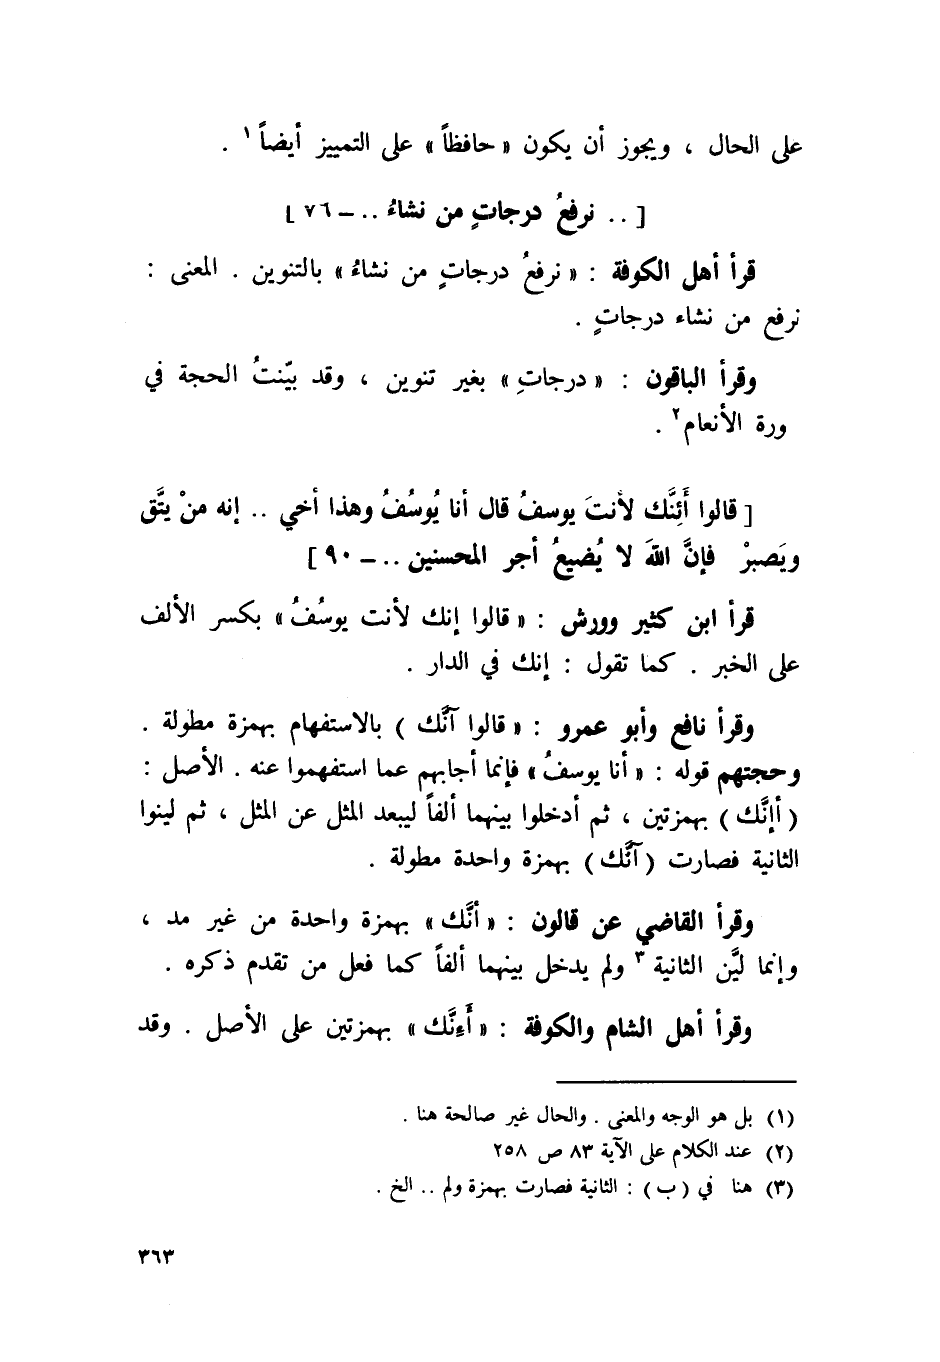 على الحال ، ويجوز أن يكون « حافظاً » على التمييز أيضاً ١ .
[ .. نرفعُ درجاتٍ من نشاءُ .. – ٧٦ ]
قرأ أهل الكوفة : « نرفعُ درجاتٍ من نشاءُ » بالتنوين . المعنى :
نرفع من نشاء درجاتٍ .
وقرأ الباقون : « درجاتِ » بغير تنوين ، وقد بيّنتُ الحجة في
ورة الأنعام ٢ .
[ قالوا أَئِنَّك لأنتَ يوسفُ قال أنا يُوسُفُ وهذا أخي .. إنه منْ يتَّق
ويَصبرْ فإنَّ اللهَ لا يُضيعُ أجر المحسنين .. – ٩٠ ]
قرأ ابن كثير وورش : « قالوا إنك لأنت يوسُفُ » بكسر الألف
على الخبر . كما تقول : إنك في الدار .
وقرأ نافع وأبو عمرو : « قالوا آنَّك ) بالاستفهام بهمزة مطولة .
وحجتهم قوله : « أنا يوسفُ » فإنما أجابهم عما استفهموا عنه . الأصل :
( أإنَّك ) بهمزتين ، ثم أدخلوا بينهما ألفاً ليبعد المثل عن المثل ، ثم لينوا
الثانية فصارت ( آنَّك ) بهمزة واحدة مطولة .
وقرأ القاضي عن قالون : « أنَّك » بهمزة واحدة من غير مد ،
وإنما ليَّن الثانية ٣ ولم يدخل بينهما ألفاً كما فعل من تقدم ذكره .
وقرأ أهل الشام والكوفة : « أَءِنَّك » بهمزتين على الأصل . وقد
(١) بل هو الوجه والمعنى . والحال غير صالحة هنا .
(٢) عند الكلام على الآية ٨٣ ص ٢٥٨
(٣) هنا في ( ب ) : الثانية فصارت بهمزة ولم .. الخ .
٣٦٣